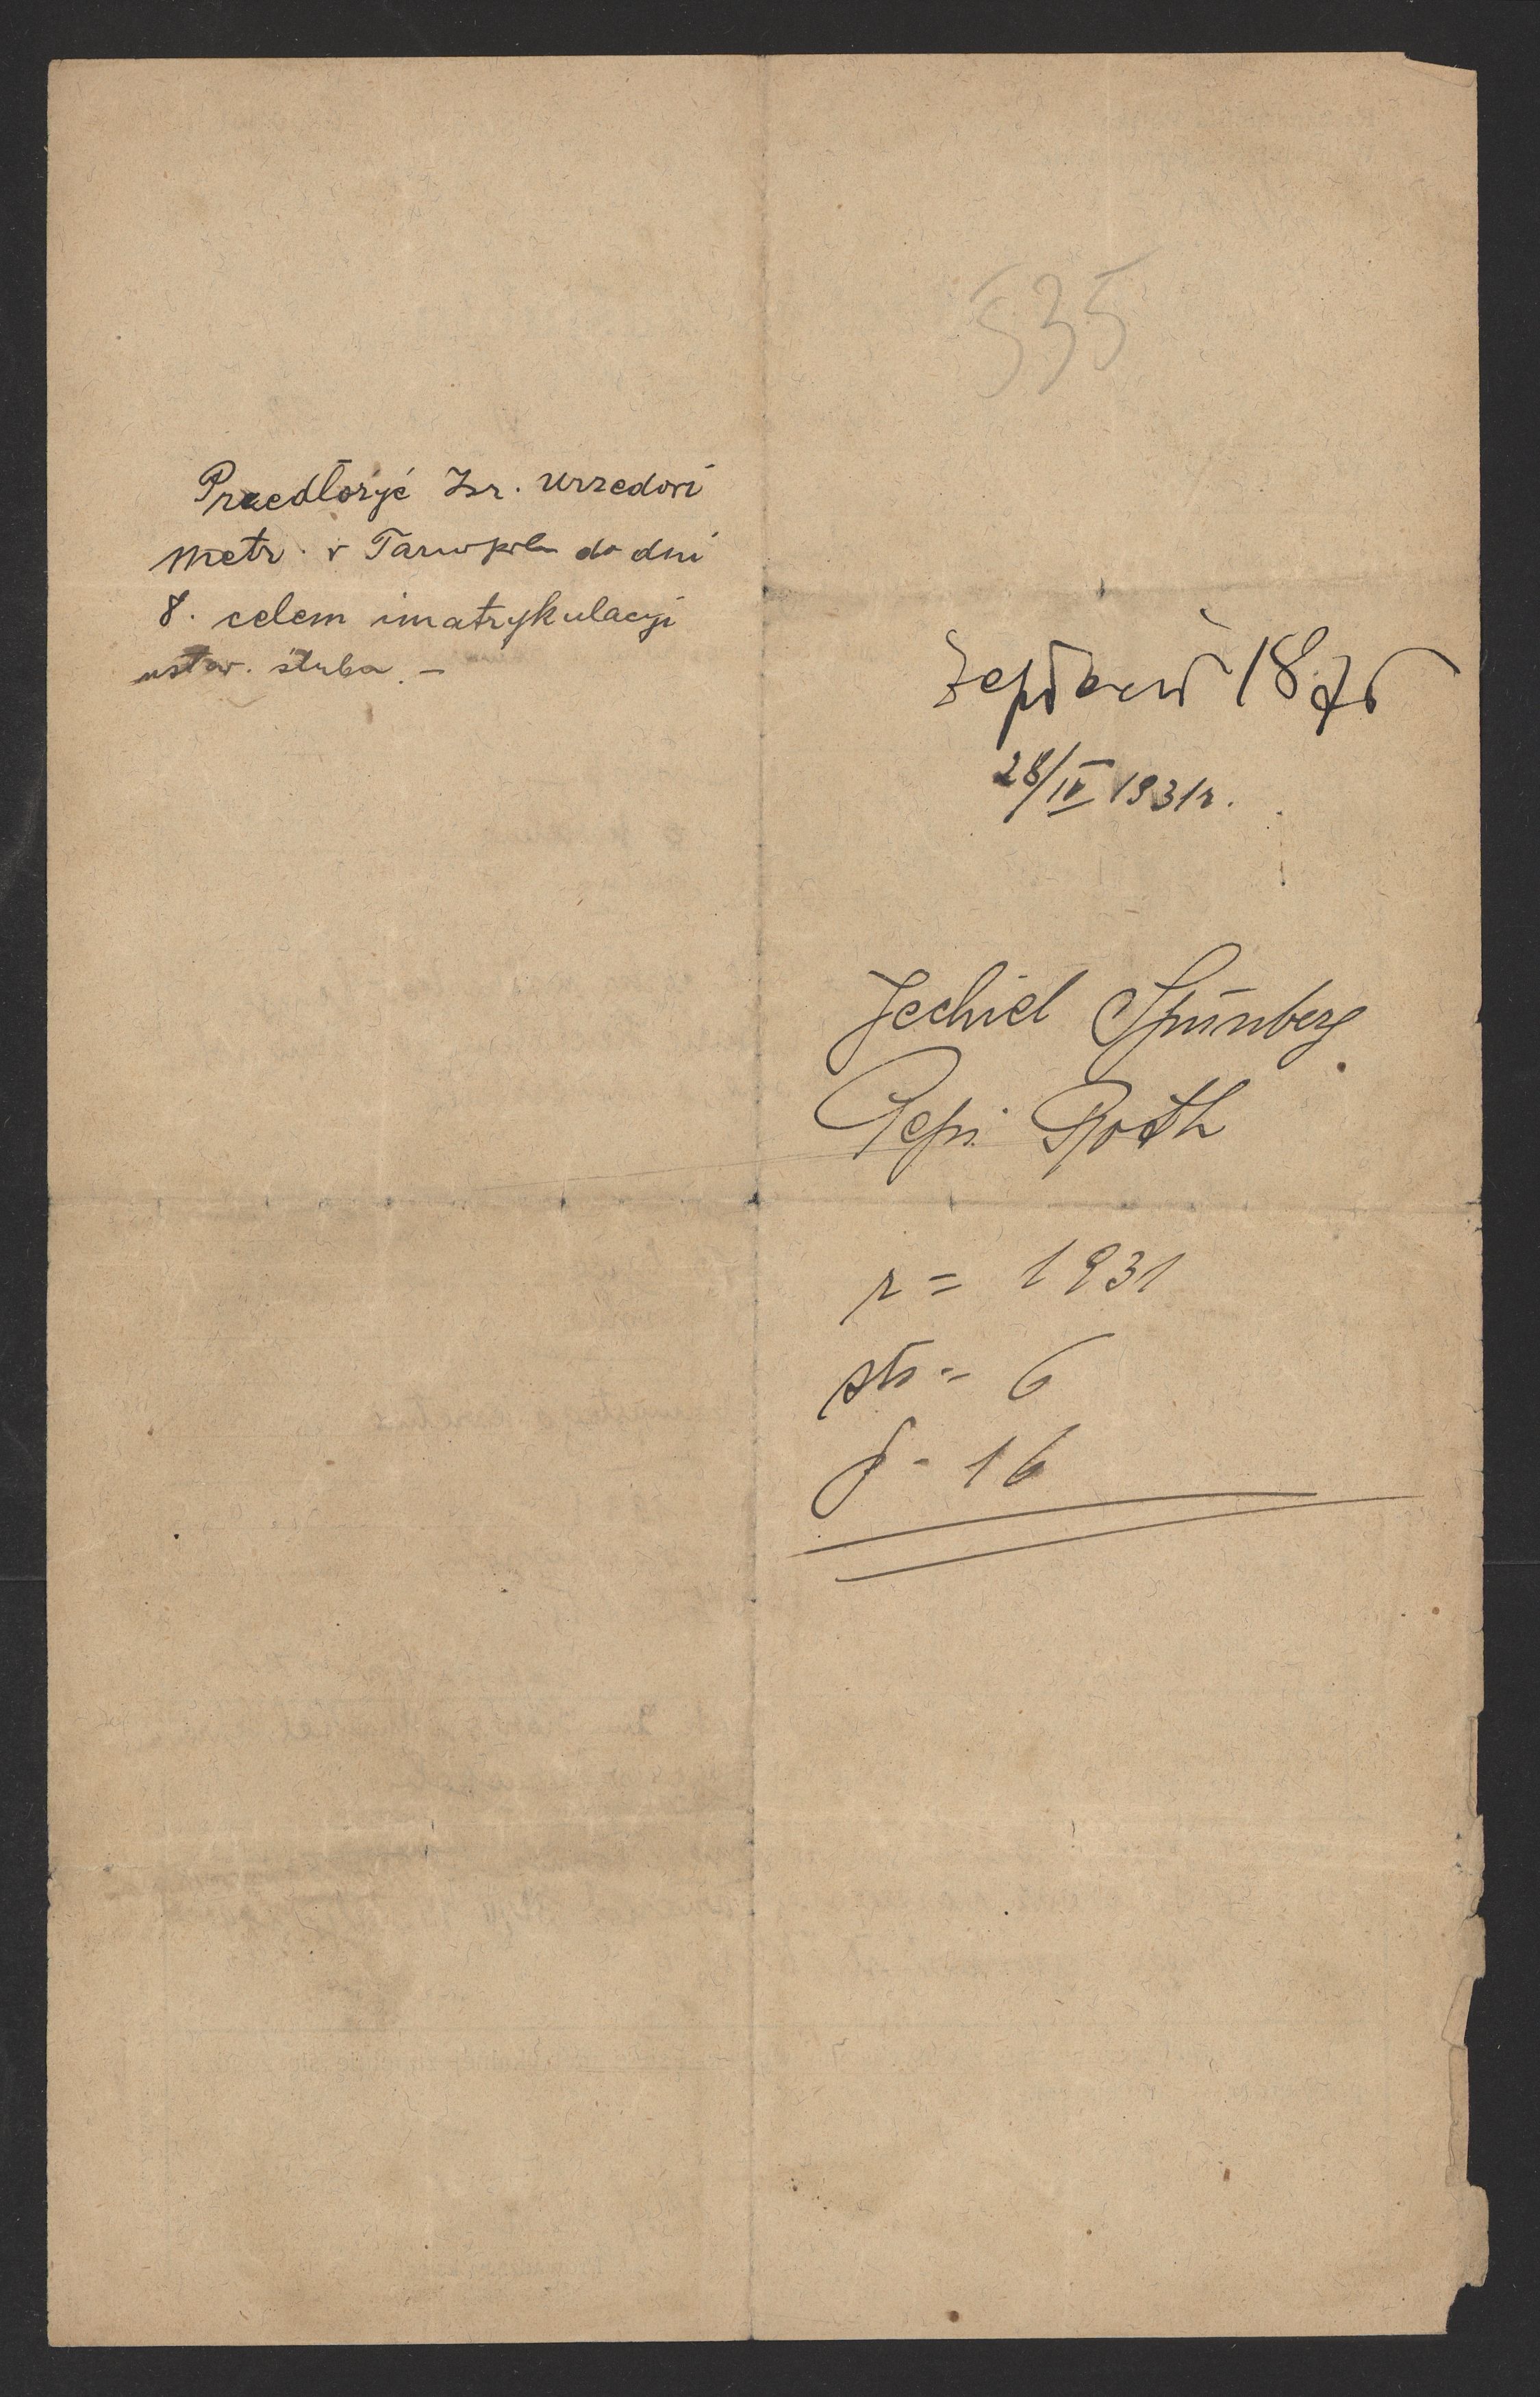 Przedłożyć Izr. urzędowi
metr. w Tarnopolu do dni
8. celem imatrykulacyi
ustaw. ślubu. –
535
Zapowiedź 1876
28/IV 1931 r.
Jechiel Grünberg
Pepi Roth
r = 1931
str = 6
p - 16